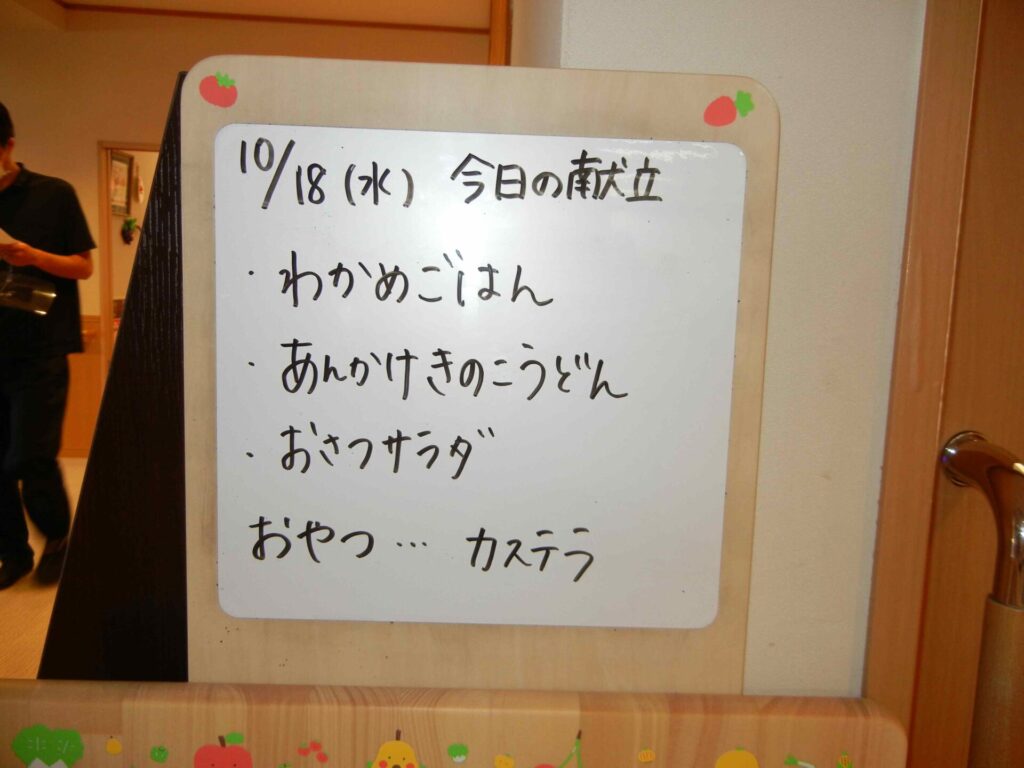 10/18(水) 今日の献立
・わかめごはん
・あんかけきのこうどん
・おさつサラダ
おやつ… カステラ